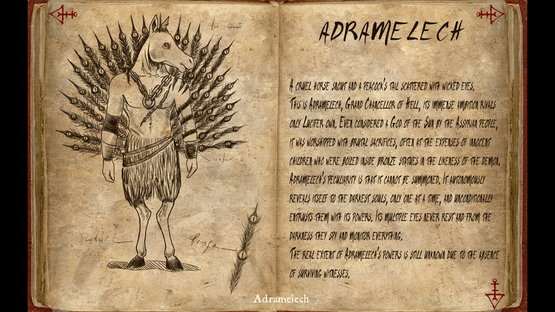 ADRAMELECH
A cruel horse snout and a peacock's tail scattered with wicked eyes.
This is Adramelech, Grand Chancellor of Hell, its immense ambition rivals
only Lucifer own. Even considered a God of the Sun by the Assyrian people,
it was worshipped with brutal sacrifices, often at the expenses of innocent
children who were boiled inside bronze statues in the likeness of the demon.
Adramelech's peculiarity is that it cannot be summoned. It autonomously
reveals itself to the darkest souls, only one at a time, and unconditionally
entrusts them with its powers. Its multiple eyes never rest and from the
darkness they spy and monitor everything.
The real extent of Adramelech's powers is still unknown due to the absence
of surviving witnesses.
Adramelech